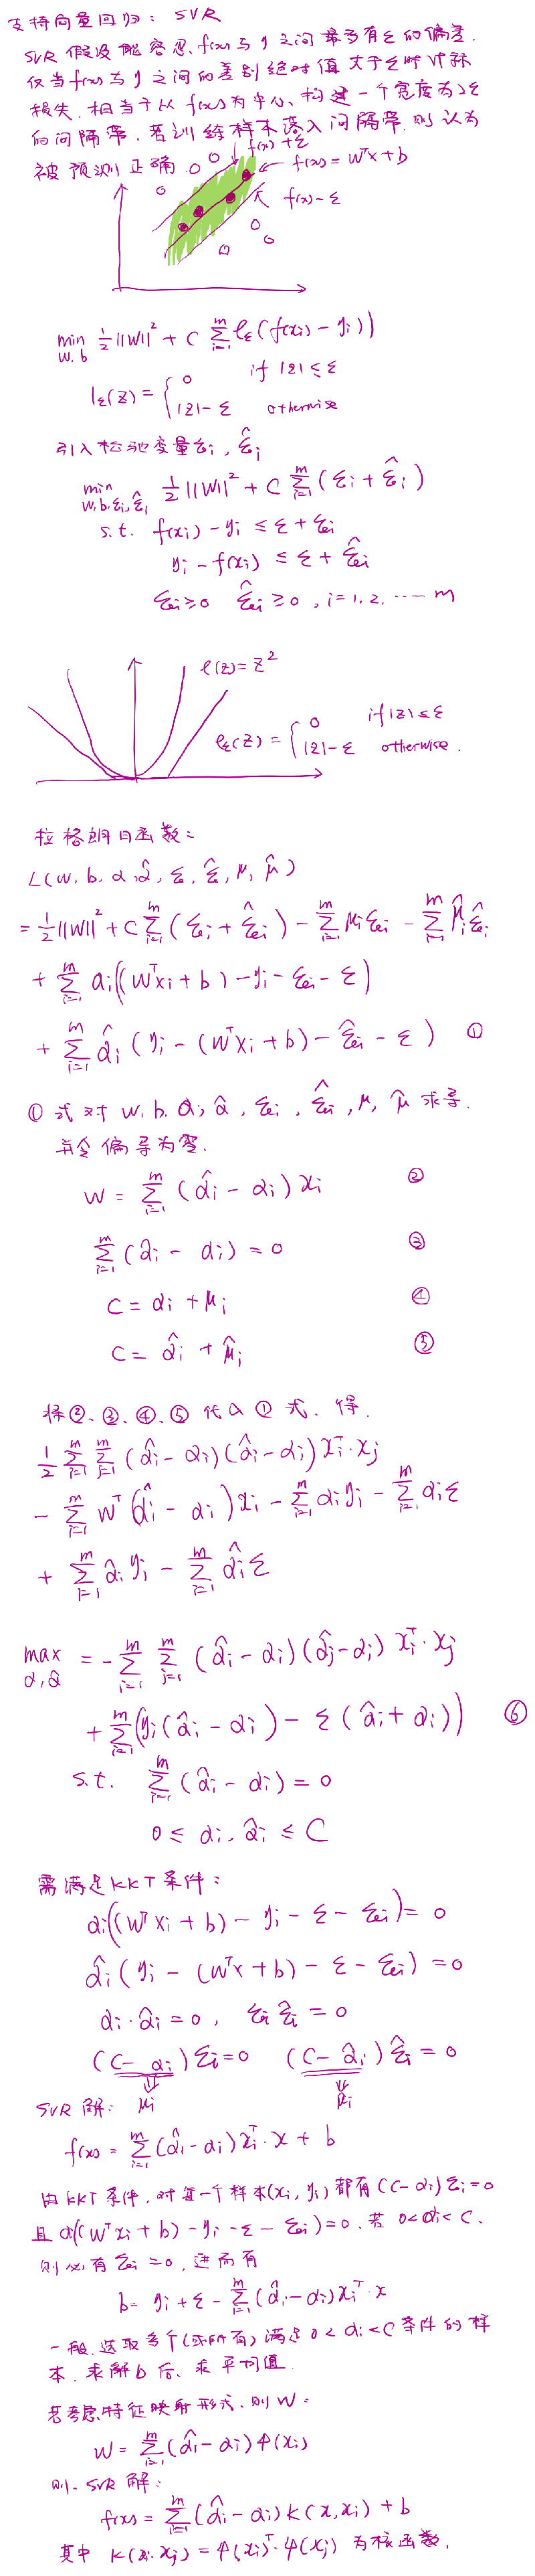 支持向量回归: SVR
SVR 假设能容忍 f(x) 与 y 之间最多有ε的偏差.
仅当f(x)与y之间的差别绝对值大于ε时计算
损失.相当于以f(x)为中心、构建一个宽度为2ε
的间隔带,若训练样本落入间隔带,则认为
被预测正确.
f(x)+ε
f(x) = wᵀx + b
f(x) - ε
min w.b ½||W||² + C Σᵢ₌₁ᵐ ℓε(f(xi) - yi))
lε(z) = { 0 if |z| ≤ ε
|z| - ε otherwise
引入松弛变量ξi, ξ̂i
min w,b,ξi,ξ̂i ½||W||² + C Σᵢ₌₁ᵐ (ξi + ξ̂i)
s.t. f(xi) - yi ≤ ε + ξi
yi - f(xi) ≤ ε + ξ̂i
ξi ≥ 0 ξ̂i ≥ 0, i = 1, 2, ······ m
ℓ(z) = z²
ℓε(z) = { 0 if |z| ≤ ε
|z| - ε otherwise.
拉格朗日函数:
L(w, b, α, α̂, ξ, ξ̂, μ, μ̂)
= ½||W||² + C Σᵢ₌₁ᵐ (ξi + ξ̂i) - Σᵢ₌₁ᵐ μiξi - Σᵢ₌₁ᵐ μ̂iξ̂i
+ Σᵢ₌₁ᵐ αi((Wᵀxi + b) - yi - ξi - ε)
+ Σᵢ₌₁ᵐ α̂i (yi - (Wᵀxi + b) - ξ̂i - ε) ①
①式对 w, b, α, α̂, ξi, ξ̂i, μ, μ̂ 求导.
并令偏导为零.
W = Σᵢ₌₁ᵐ (α̂i - αi) xi ②
Σᵢ₌₁ᵐ (α̂i - αi) = 0 ③
C = αi + μi ④
C = α̂i + μ̂i ⑤
将②、③、④、⑤代入①式、得.
½ Σᵢ₌₁ᵐ Σⱼ₌₁ᵐ (α̂i - αi)(α̂i - αi) xiᵀ·xj
- Σᵢ₌₁ᵐ Wᵀ(α̂i - αi) xi - Σᵢ₌₁ᵐ αi yi - Σᵢ₌₁ᵐ αi ε
+ Σᵢ₌₁ᵐ α̂i yi - Σᵢ₌₁ᵐ α̂i ε
max α,α̂ = - Σᵢ₌₁ᵐ Σⱼ₌₁ᵐ (α̂i - αi)(α̂j - αj) xiᵀ·xj
+ Σᵢ₌₁ᵐ (yi(α̂i - αi) - ε(α̂i + αi)) ⑥
s.t. Σᵢ₌₁ᵐ (α̂i - αi) = 0
0 ≤ αi, α̂i ≤ C
需满足KKT条件:
αi((Wᵀxi + b) - yi - ε - ξi) = 0
α̂i (yi - (Wᵀx + b) - ε - ξi) = 0
αi·α̂i = 0, ξi ξ̂i = 0
(C - αi) ξi = 0 (C - α̂i) ξ̂i = 0
μi μ̂i
SVR 解:
f(x) = Σᵢ₌₁ᵐ (α̂i - αi) xiᵀ·x + b
由KKT条件,对每一个样本(xi, yi)都有(C - αi)ξi = 0
且αi((Wᵀxi + b) - yi - ε - ξi) = 0. 若 0 < αi < C.
则必有ξi = 0, 进而有
b = yi + ε - Σᵢ₌₁ᵐ (α̂i - αi) xiᵀ·x
一般.选取多个(或所有)满足0 < αi < C条件的样
本.求解b后、求平均值.
若考虑特征映射形式、则W:
W = Σᵢ₌₁ᵐ (α̂i - αi) φ(xi)
则 SVR 解:
f(x) = Σᵢ₌₁ᵐ (α̂i - αi) k(x, xi) + b
其中 k(xi, xj) = φ(xi)ᵀ·φ(xj) 为核函数.